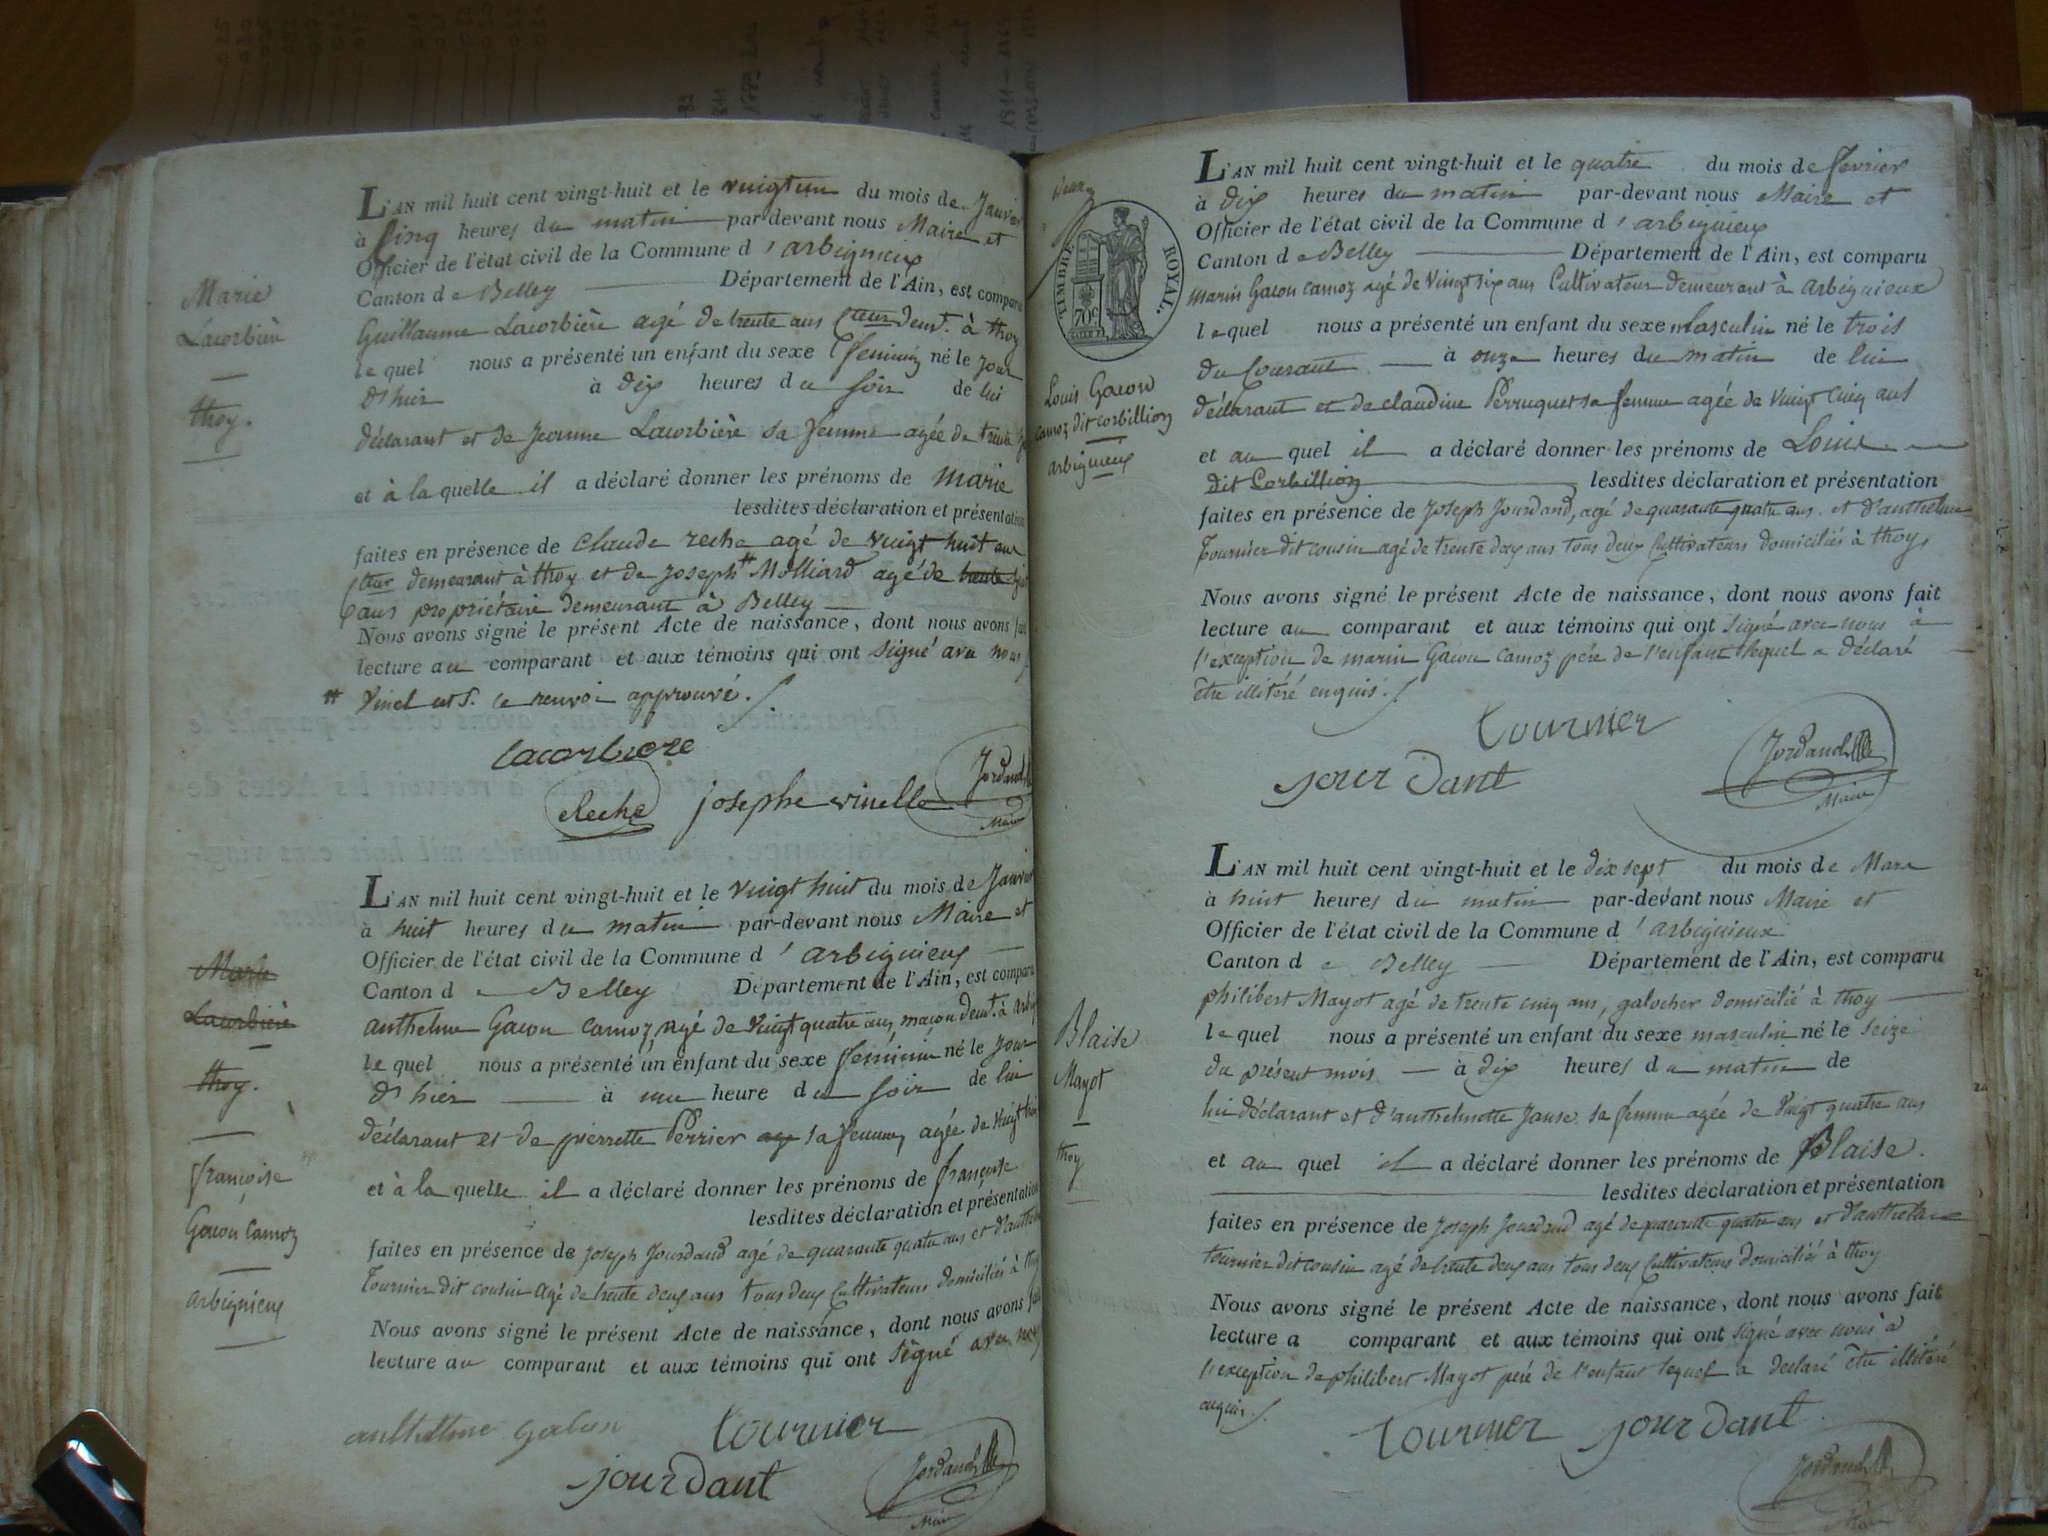 Marie
Lacorbière
thoy.
L'AN mil huit cent vingt-huit et le vingtun du mois de Janvier
à Cinq heures du matin par-devant nous Maire et
Officier de l'état civil de la Commune d'arbignieux
Canton de Belley Département de l'Ain, est comparu
Guillaume Lacorbière agé de trente ans Cteur demt. à thoy
lequel nous a présenté un enfant du sexe feminin né le jour
d'hier à dix heures du soir de lui
déclarant et de Jeanne Lacorbière sa femme agée de trente
et à laquelle il a déclaré donner les prénoms de Marie
lesdites déclaration et présentation
faites en présence de Claude reche agé de vingt huit ans
Cteur demeurant à thoy et de joseph # Molliard agé de trente
ans propriétaire demeurant à Belley
Nous avons signé le présent Acte de naissance, dont nous avons fait
lecture au comparant et aux témoins qui ont signé avec nous
# Vinel ce renvoi approuvé.
Lacorbiere
Reche josephe vinelle Jordand
Maire
Marie
Lacorbière
thoy.
françoise
Gacon Camoz
arbignieux
L'AN mil huit cent vingt-huit et le vingt huit du mois de Janvier
à huit heures du matin par-devant nous Maire et
Officier de l'état civil de la Commune d'arbignieux
Canton de Belley Département de l'Ain, est comparu
anthelme Gacon Camoz, agé de vingt quatre ans, maçon demt. à
lequel nous a présenté un enfant du sexe féminin né le jour
d'hier à une heure du soir de lui
déclarant et de pierrette Perrier sa femme, agée de vingt
et à laquelle il a déclaré donner les prénoms de françoise
lesdites déclaration et présentation
faites en présence de joseph Jourdand agé de quarante quatre ans et d'anthelme
Tournier dit cousin agé de trente deux ans tous deux Cultivateurs domiciliés à thoy
Nous avons signé le présent Acte de naissance, dont nous avons fait
lecture au comparant et aux témoins qui ont signé avec nous
anthelme gacon tournier
jourdant Jordand
Maire
TIMBRE ROYAL.
70c
Louis Gacon
camoz dit corbillion
arbignieux
L'AN mil huit cent vingt-huit et le quatre du mois de fevrier
à dix heures du matin par-devant nous Maire et
Officier de l'état civil de la Commune d'arbignieux
Canton de Belley Département de l'Ain, est comparu
Marin Gacon camoz agé de vingt six ans Cultivateur demeurant à arbignieux
lequel nous a présenté un enfant du sexe Masculin né le trois
du Courant à onze heures du matin de lui
déclarant et de claudine Perruquet sa femme agée de vingt cinq ans
et auquel il a déclaré donner les prénoms de Louis
dit Corbillion lesdites déclaration et présentation
faites en présence de Joseph Jourdand, agé de quarante quatre ans et d'anthelme
Tournier dit cousin agé de trente deux ans tous deux Cultivateurs domiciliés à thoy,
Nous avons signé le présent Acte de naissance, dont nous avons fait
lecture au comparant et aux témoins qui ont signé avec nous à
l'exception de marin Gacon camoz père de l'enfant lequel a déclaré
être illitéré enquis.
tournier
jourdant Jordand
Maire
Blaise
Mayot
thoy
L'AN mil huit cent vingt-huit et le dix sept du mois de Mars
à huit heures du matin par-devant nous Maire et
Officier de l'état civil de la Commune d'arbignieux
Canton de Belley Département de l'Ain, est comparu
philibert Mayot agé de trente cinq ans, galocher domicilié à thoy
lequel nous a présenté un enfant du sexe masculin né le seize
du présent mois à dix heures du matin de
lui déclarant et d'anthelmette Janse sa femme agée de vingt quatre ans
et auquel il a déclaré donner les prénoms de Blaise.
lesdites déclaration et présentation
faites en présence de Joseph Jourdand agé de quarante quatre ans et d'anthelme
tournier dit cousin agé de trente deux ans tous deux Cultivateurs domiciliés à thoy
Nous avons signé le présent Acte de naissance, dont nous avons fait
lecture a comparant et aux témoins qui ont signé avec nous à
l'exception de philibert Mayot père de l'enfant lequel a declaré être illitéré
enquis.
tournier jourdant
Jordand
Maire